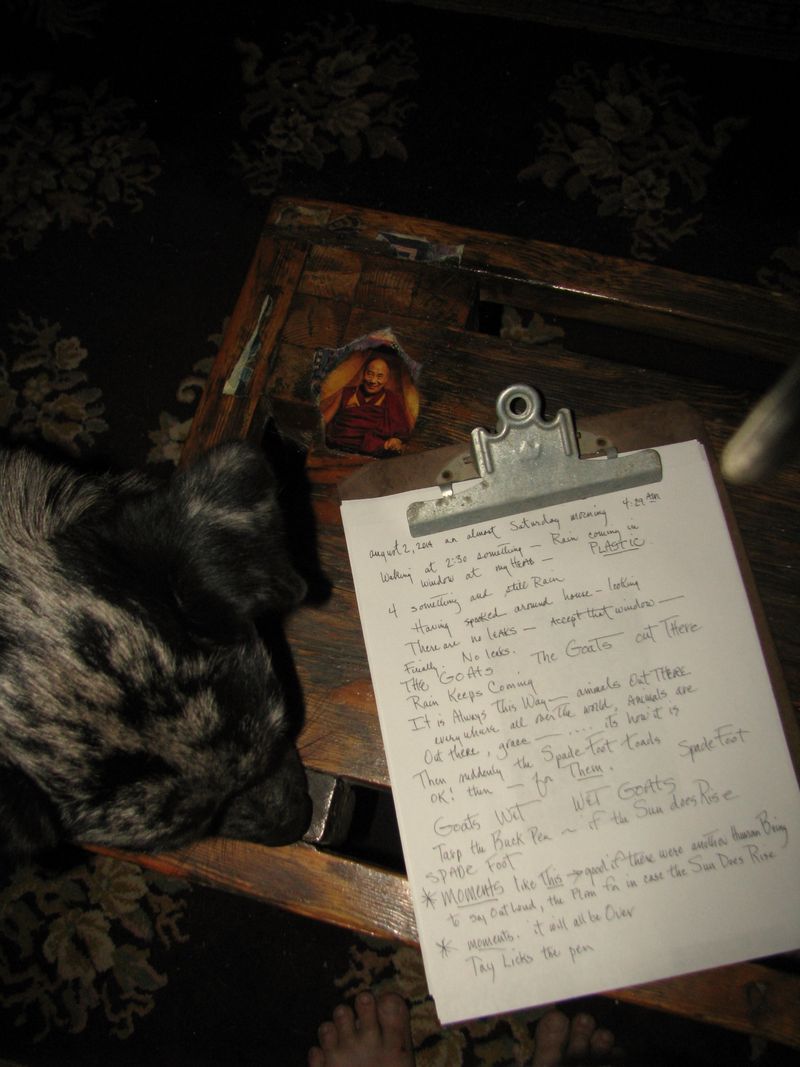 august 2, 2014 an almost Saturday morning 4:29 AM
Waking at 2:30 something — Rain coming in
window at my HEAD — PLASTIC.
4 something and still Rain
Having spooked around house — looking
There are no LEAKS — Accept that window —
Finally. No leaks.
THE GOATS The Goats out THERE
Rain Keeps Coming
It is Always This Way — animals Out THERE
everywhere all over the world, Animals are
Out there, graee — .... its how it is
Then suddenly the SpadeFoot toads SpadeFoot
OK! then — for Them.
Goats Wet WET GOATS
Tarp the Buck Pen ~ if the Sun does Rise
SPADE Foot
* MOMENTS like This → good if there were another Human Being
to say Out Loud, the Plan for in case the Sun Does Rise
* moments. it will all be Over
Tay Licks the pen